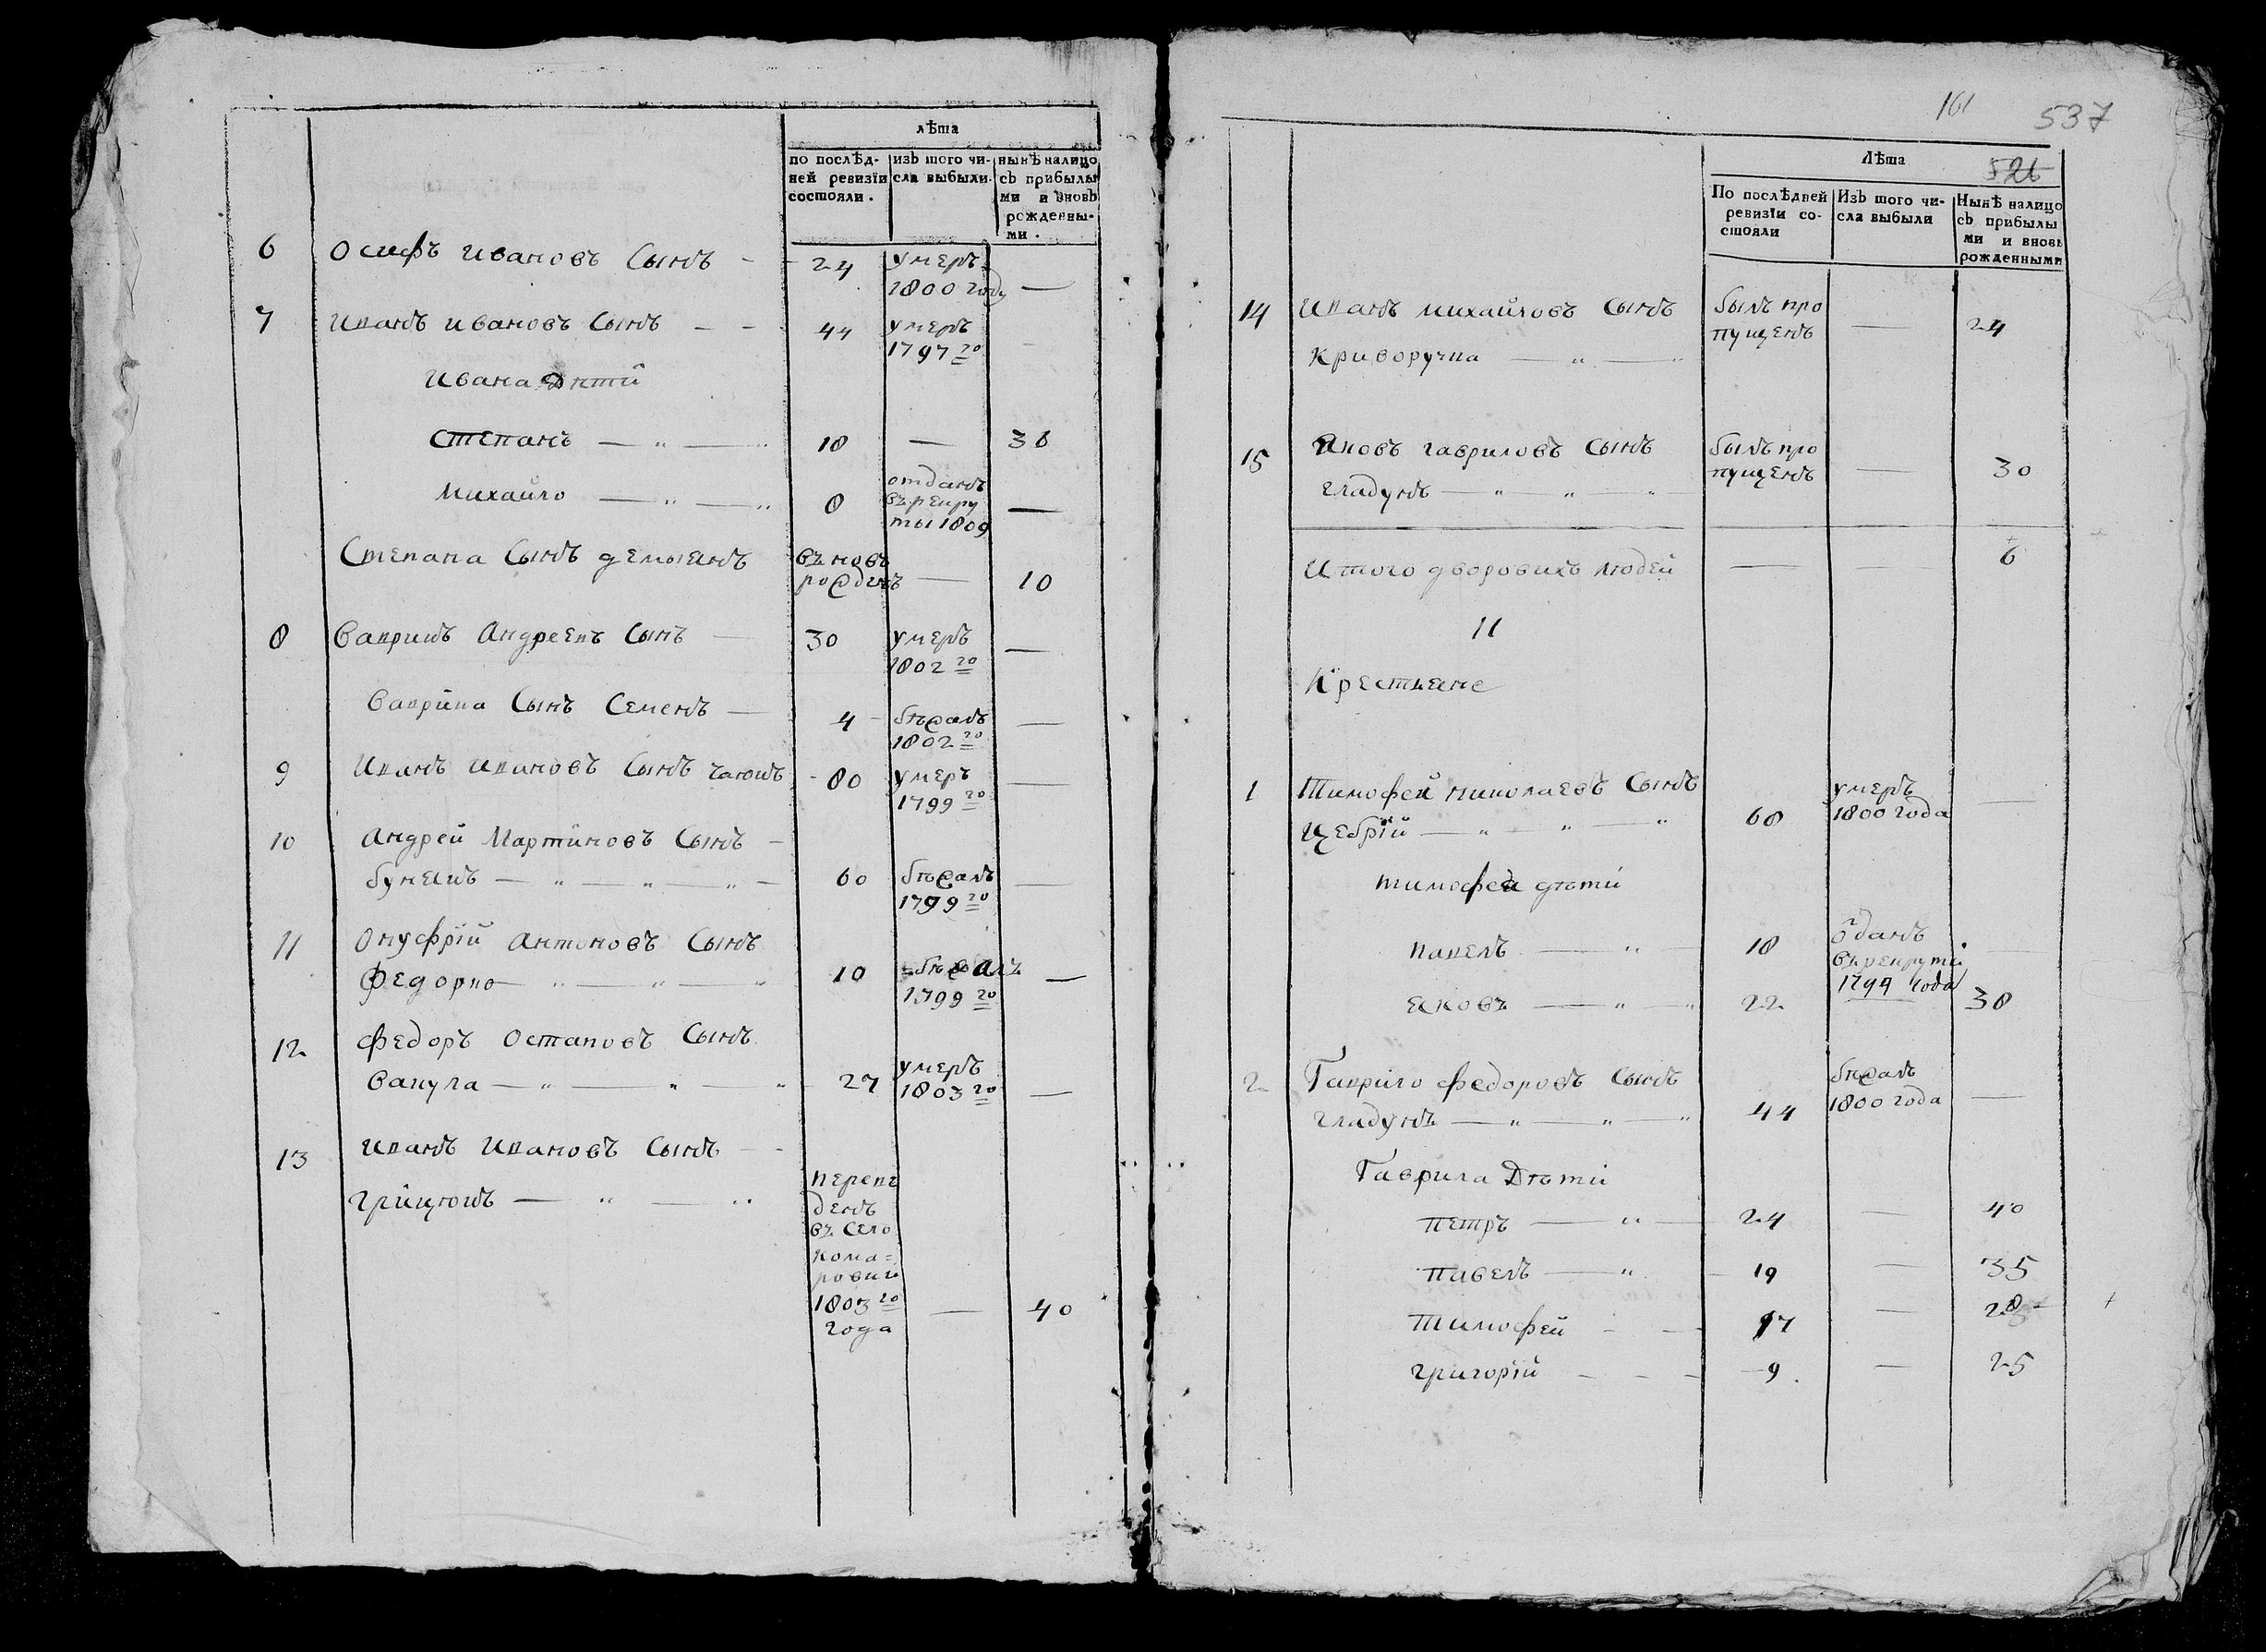 лѣта
по послѣд-
ней ревизіи
состояли.
изъ того чи-
сла выбыли.
нынѣ налицо
съ прибылы
ми и вновь
рожденны-
ми.
6 Осифъ Ивановъ Сынъ - - 24 умеръ
1800 году —
7 Иванъ Ивановъ Сынъ — - 44 умеръ
1797 го -
Ивана Дѣти
Степанъ — „ — „ 18 — 36
Михайло — „ — „ 8 отданъ
въ рекру
ты 1809 —
Степана Сынъ Демьянъ въновь
рожденъ — 10
8 Андреевъ Сынъ — 30 умеръ
1802 го —
Сынъ Семенъ — 4 - бѣжалъ
1802 го —
9 Иванъ Ивановъ Сынъ - 80 умеръ
1799 го —
10 Андрей Мартиновъ Сынъ -
— „ — „ — „ — 60 бѣжалъ
1799 го —
11 Онуфрій Антоновъ Сынъ
Федорко — „ — „ — „ 10 бѣжалъ
1799 го —
12 Федоръ Остаповъ Сынъ
Вакула — „ — „ — „ 27 умеръ
1803 го —
13 Иванъ Ивановъ Сынъ - -
Грицюкъ — „ — „ переве
денъ
въ село
Кома=
ровки
1803 го
года — 40
161 537
526
Лѣта
По послѣдней
ревизіи со-
стояли
Изъ того чи-
сла выбыли
Нынѣ налицо
съ прибылы
ми и вновь
рожденными
14 Иванъ Михайловъ Сынъ былъ про
пущенъ — 24
Криворучка — „ — „
15 Яковъ Гавриловъ Сынъ былъ про
пущенъ — 30
Гладунъ — „ — „ „
Итого дворовихъ людей — — 6
И
Крестьяне
1 Тимофей Николаевъ Сынъ умеръ
Цебрій — „ — „ — „ 68 1800 года —
Тимофея дѣти
Павелъ — „ — 18 отданъ
въ рекруты
1799 года —
Яковъ — „ — „ 22 — 38
2 Гаврило Федоровъ Сынъ бѣжалъ
Гладунъ — „ — „ — „ 44 1800 года —
Гаврила Дѣти
Петръ — „ — 24 — 40
Павелъ — „ — 19 — 35
Тимофей - — 17 — 28
Григорій - - - 9. — 25